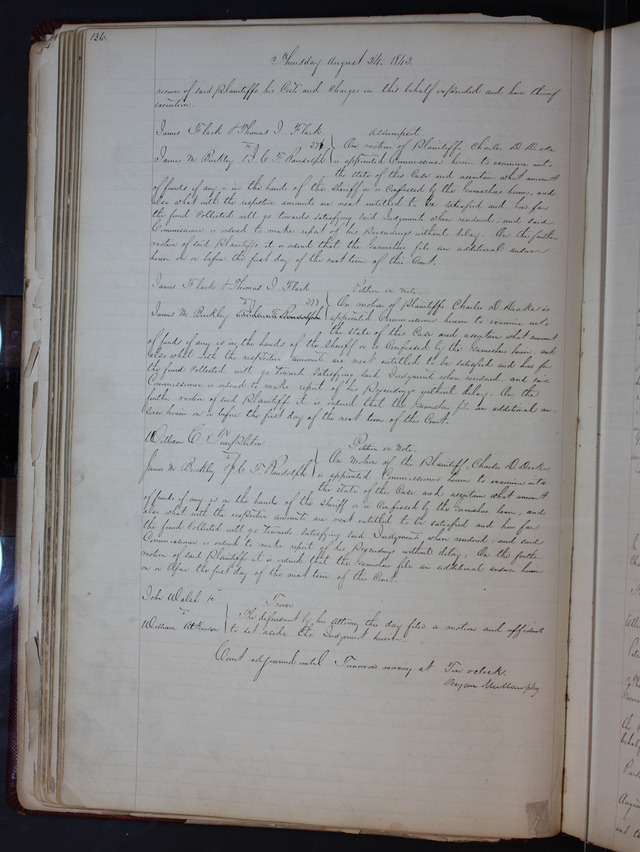 136.
Thursday August 24. 1843.
recover of said Plaintiffs his Costs and Charges in this behalf expended and have thereof
execution.
James Flack & Thomas I Flack
Assumpsit
vs 276
On motion of Plaintiffs Charles D. Drake
James M. Buckley & J. C. F. Randolph
is appointed Commissioner herein to examine into
the state of this Case and ascertain what amount
of funds if any is in the hands of the Sheriff or is Confessed by the Garnishees herein, and
also what with the respective amounts are next entitled to be satisfied and how far
the fund Collected will go towards satisfying said Judgment when rendered, and said
Commissioner is ordered to make report of his proceedings without delay. On the further
motion of said Plaintiffs it is ordered that the Garnishee file an additional answer
herein on or before the first day of the next term of this Court.
James Flack & Thomas I. Flack
Petition on Note.
vs 277
On motion of Plaintiffs Charles D. Drake is
James M. Buckley
appointed Commissioner herein to examine into
the state of the Case and ascertain what amount
of funds if any is in the hands of the Sheriff or is Confessed by the Garnishee herein, and
also what with the respective amounts are next entitled to be satisfied and how far
the fund Collected will go toward satisfying said Judgment, when rendered, and said
Commissioner is ordered to make report of his Proceedings without delay. On the
further motion of said Plaintiffs it is ordered that the Garnishee file an additional an-
swer herein on or before the first day of the next term of this Court.
William C. Templeton
Petition on Note.
vs
On Motion of the Plaintiff, Charles D Drake
James M Buckley & J C F Randolph
is appointed Commissioner herein to examine into
the state of the Case and ascertain what amount
of funds if any is in the hands of the Sheriff or is Confessed by the Garnishee herein, and
also what with the respective amounts are next entitled to be satisfied and how far
the fund Collected will go towards satisfying said Judgment, when rendered, and said
Commissioner is ordered to make report of his Proceedings without delay. On the further
motion of said Plaintiff it is ordered that the Garnishee file an additional answer herein
on or before the first day of the next term of this Court.
John Walsh
Trover
vs
The defendant by his Attorney this day files a motion and affidavit
William Atkinson
to set aside the Judgment herein.
Court adjourned until Tomorrow morning at Ten oclock.
Bryan Mullanphy